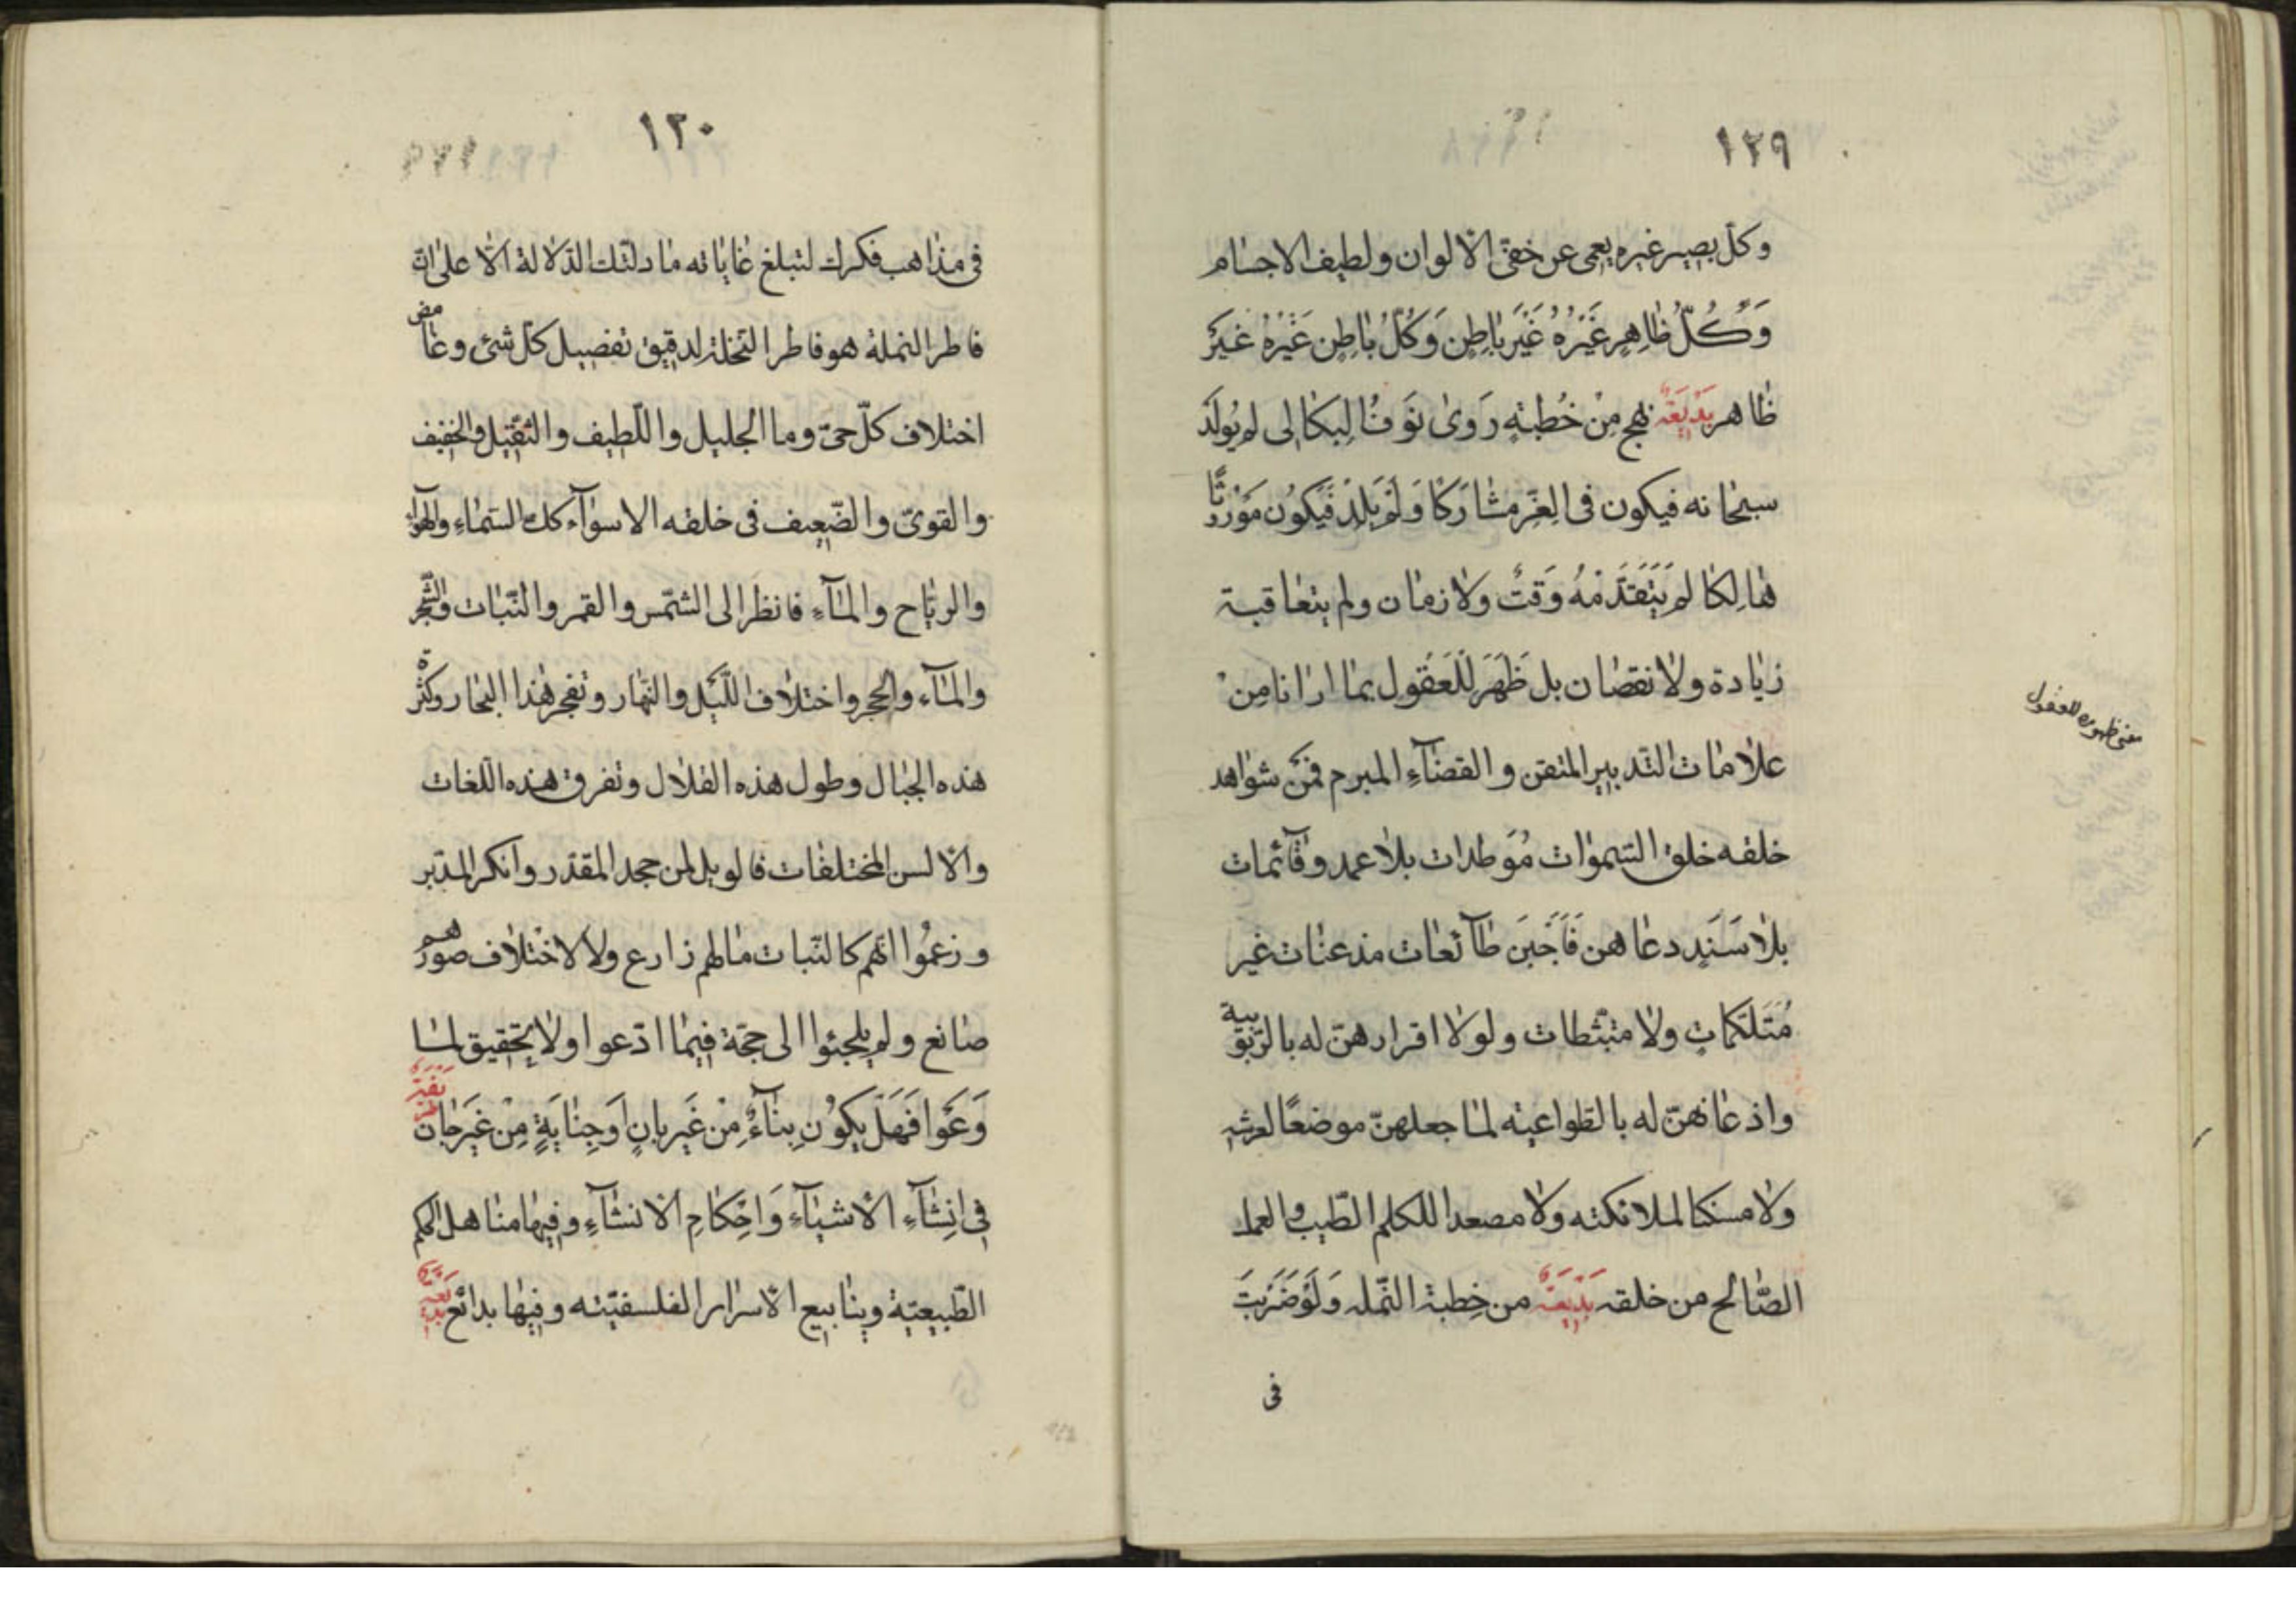 ١٢٩
وكلّ بصير غيره يعمى عن خفىّ الألوان ولطيف الاجسام
وَكُلُّ ظاهِرٍ غَيْرُهُ غَيْرَ باطِن وَكُلُّ باطِن غَيْرُهُ غَيْرَ
ظاهر بَدْيعَة نهج مِنْ خُطبتهِ رَوىٰ نَوَفُ البِكالى لم يُولَدْ
سبحانه فيكون فى العِزّ مشارَكًا وَلَمْ يَلِدْ فَيَكوُن مَوْرُوثًا
هٰالِكًا لم يَتَقَدَّمْهُ وَقتٌ ولا زمان ولم يتعاقبة
زيادة ولا نقصان بل ظَهَرَ لِلْعَقُول بما ارانا مِنْ
علامات التّدبير المتقن والقضاءِ المبرم فمن شواهد
خلقه خلق السّموات مُوَطدات بلا عمد وقائمات
بلا سَنَدٍ دعاهن فَأَجَبْنَ طآئعات مذعنات غير
مُتَلَكِّماتٍ ولا متبّطات ولولا اقرارهنّ له بالرّبوبية
واذعانهنّ له بالطّواعيته لما جعلهنّ موضعًا لعرشه
ولا مسكنا لملائكته ولا مصعدا للكلم الطّيب والعمل
الصّالح من خلقه بَدْيعَة من خِطبة النّمله وَلَوْ ضَرَبتَ
فى
معنى ظهوره للعقول
١٣٠
فى مذاهب فكرك لتبلغ غاياته ما دلتّك الدّلالة الّا على انّ
فاطر النملة هو فاطر النّخلة لدقيق تفصيل كلّ شىء وغامض
اختلاف كلّ حىّ وما الجليل واللّطيف والثّقيل والخفيف
والقوىّ والضّعيف فى خلقه الا سوآء كك السّماءِ والهوآء
والرياح والمآءِ فانظر الى الشّمس والقمر والنّبات والشّجر
والمآء والحجر واختلاف اللّيل والنّهار وتفجر هذا البحار وكثرة
هذه الجبال وطول هذه القلال وتفرق هذه اللّغات
والألسن المختلفات فالويل لمن جحد المقدّر وانكر المدّبر
وزعمُوا انّهم كالنّبات مالهم زارع ولا لاختلاف صورهم
صانع ولم يلجئوا الى حجّة فيما ادّعوا ولا تحقيق لما
وَعَوا فَهَلْ يَكوُن بِنآءٌ مِنْ غَيرِ بانٍ اَوَ جِنايَةٍ مِنْ غَيرِ جان
فى اِنشآءِ الأشيآءِ وَاحْكامِ الانشآءِ وفيها مناهل الحكم
الطّبيعيّة وينابيع الأسرار الفلسفيّته وفيها بدائع بديعة